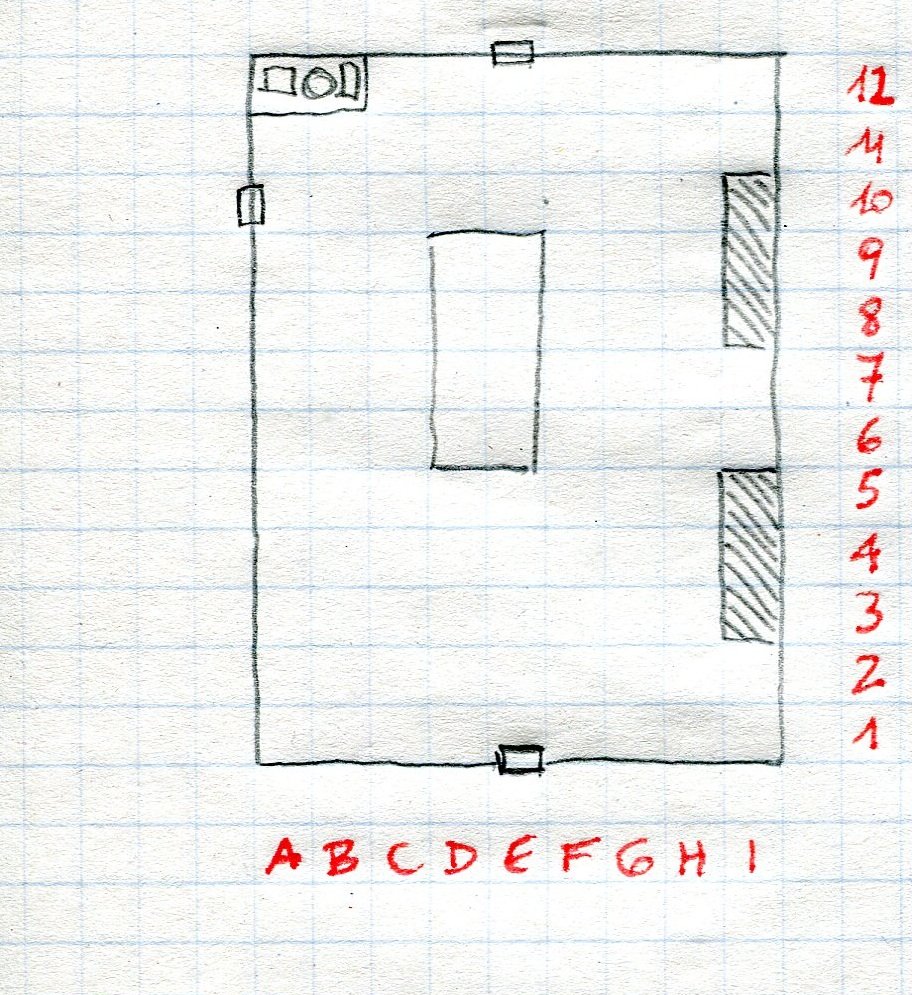 12
11
10
9
8
7
6
5
4
3
2
1
A B C D E F G H I